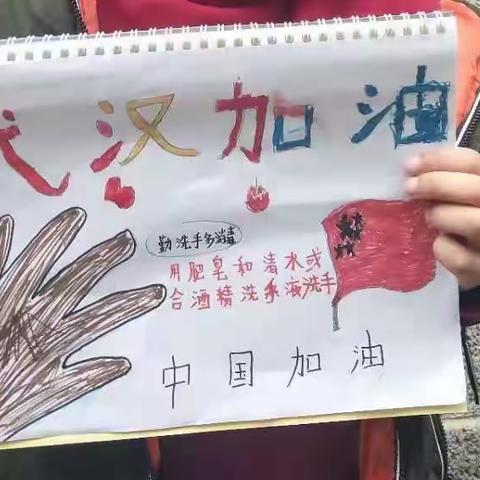 武汉加油
勤洗手多消毒
用肥皂和清水或
含酒精洗手液洗手
中国加油